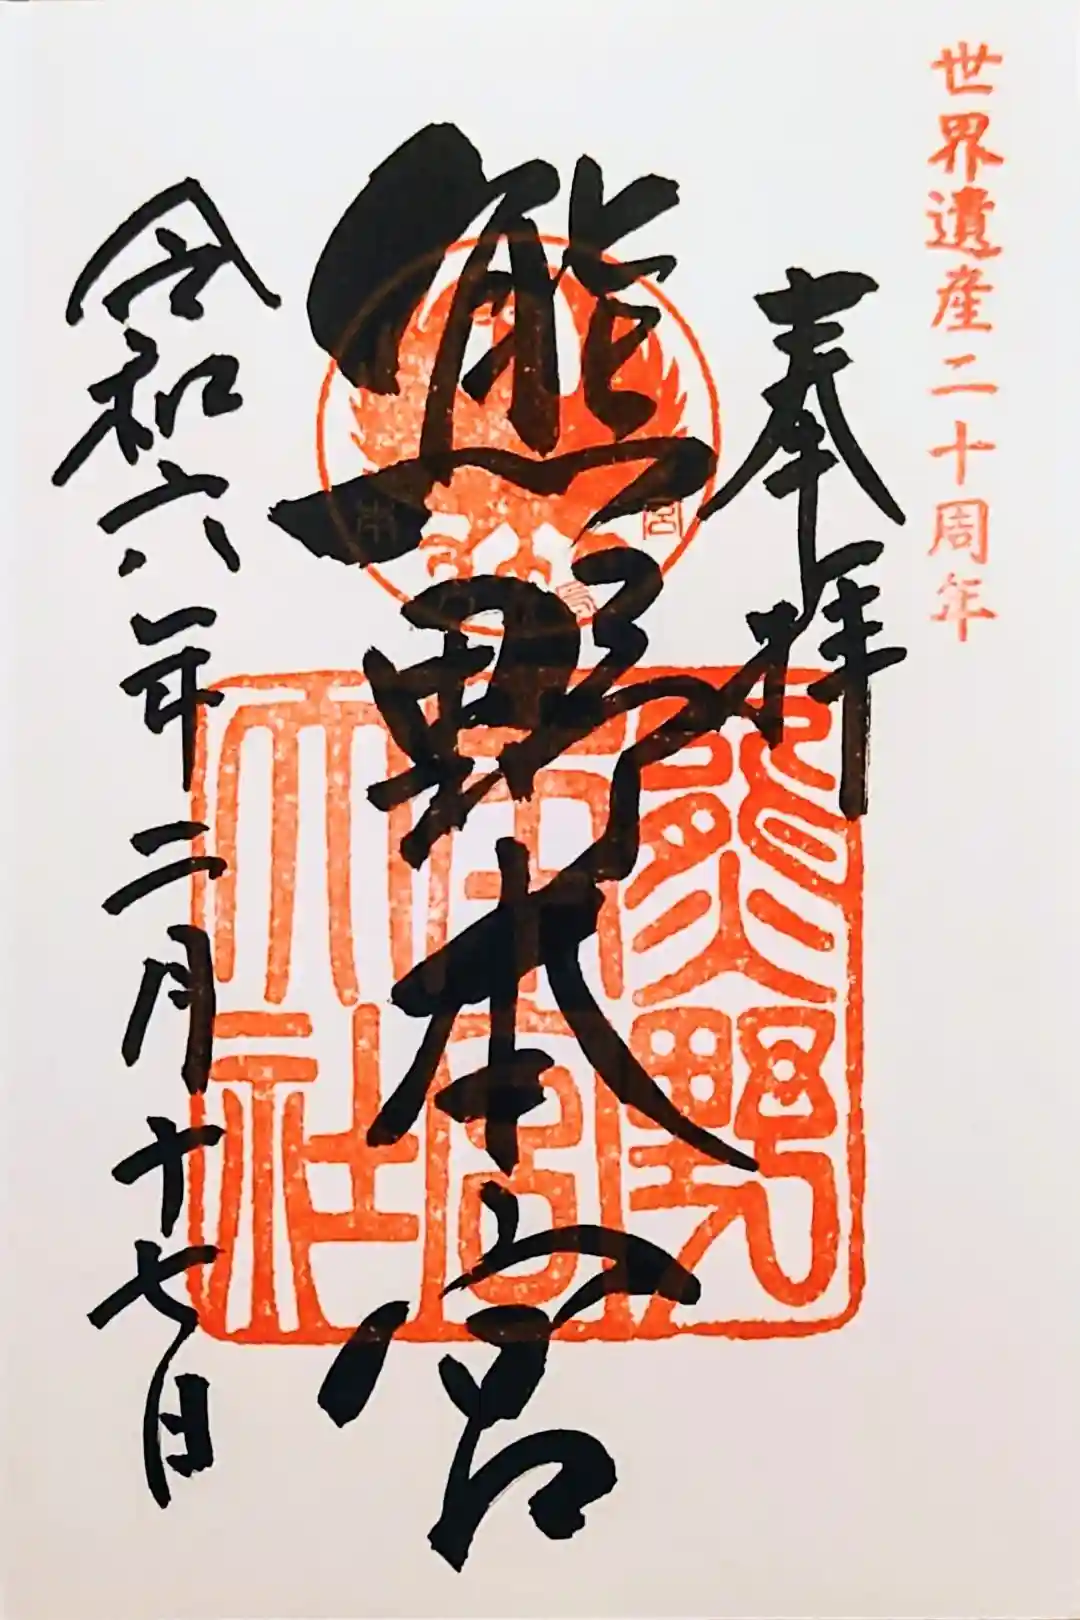 世界遺産二十周年
奉拝
熊野本宮
令和六年二月十七日
熊野
本宮
大社